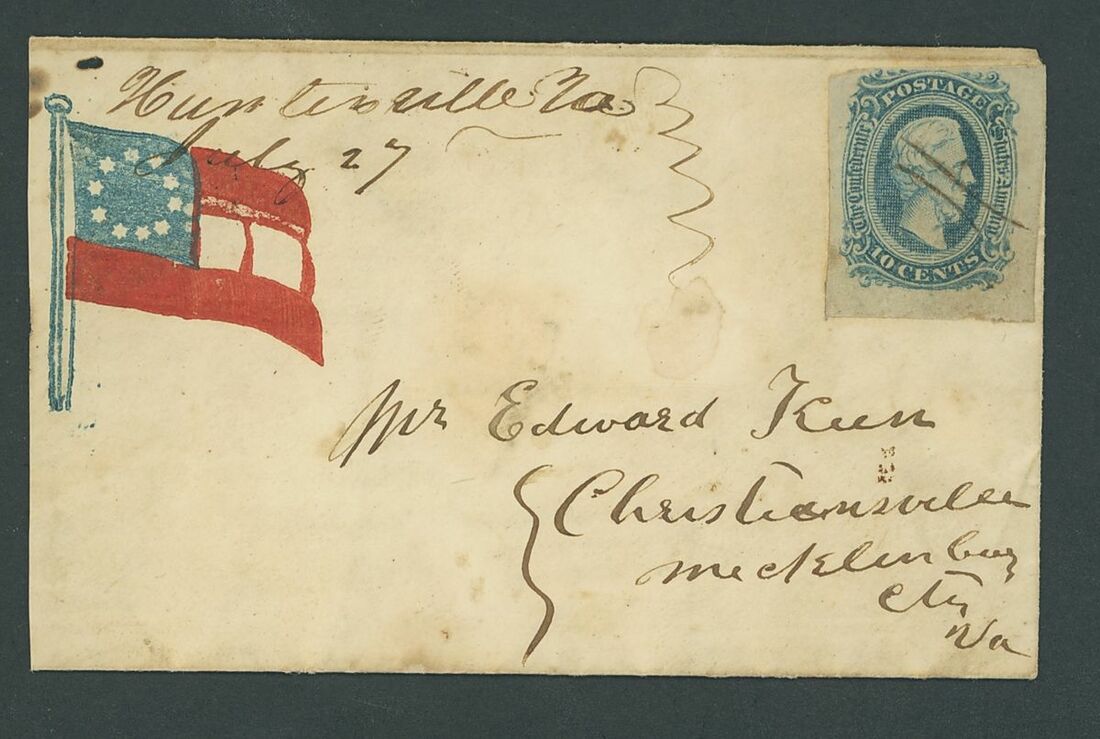 Huntersville Va
July 27
POSTAGE
The Confederate
States of America
10 CENTS
Mr Edward Keen
Christiansville
Mecklenburg
Cty
Va